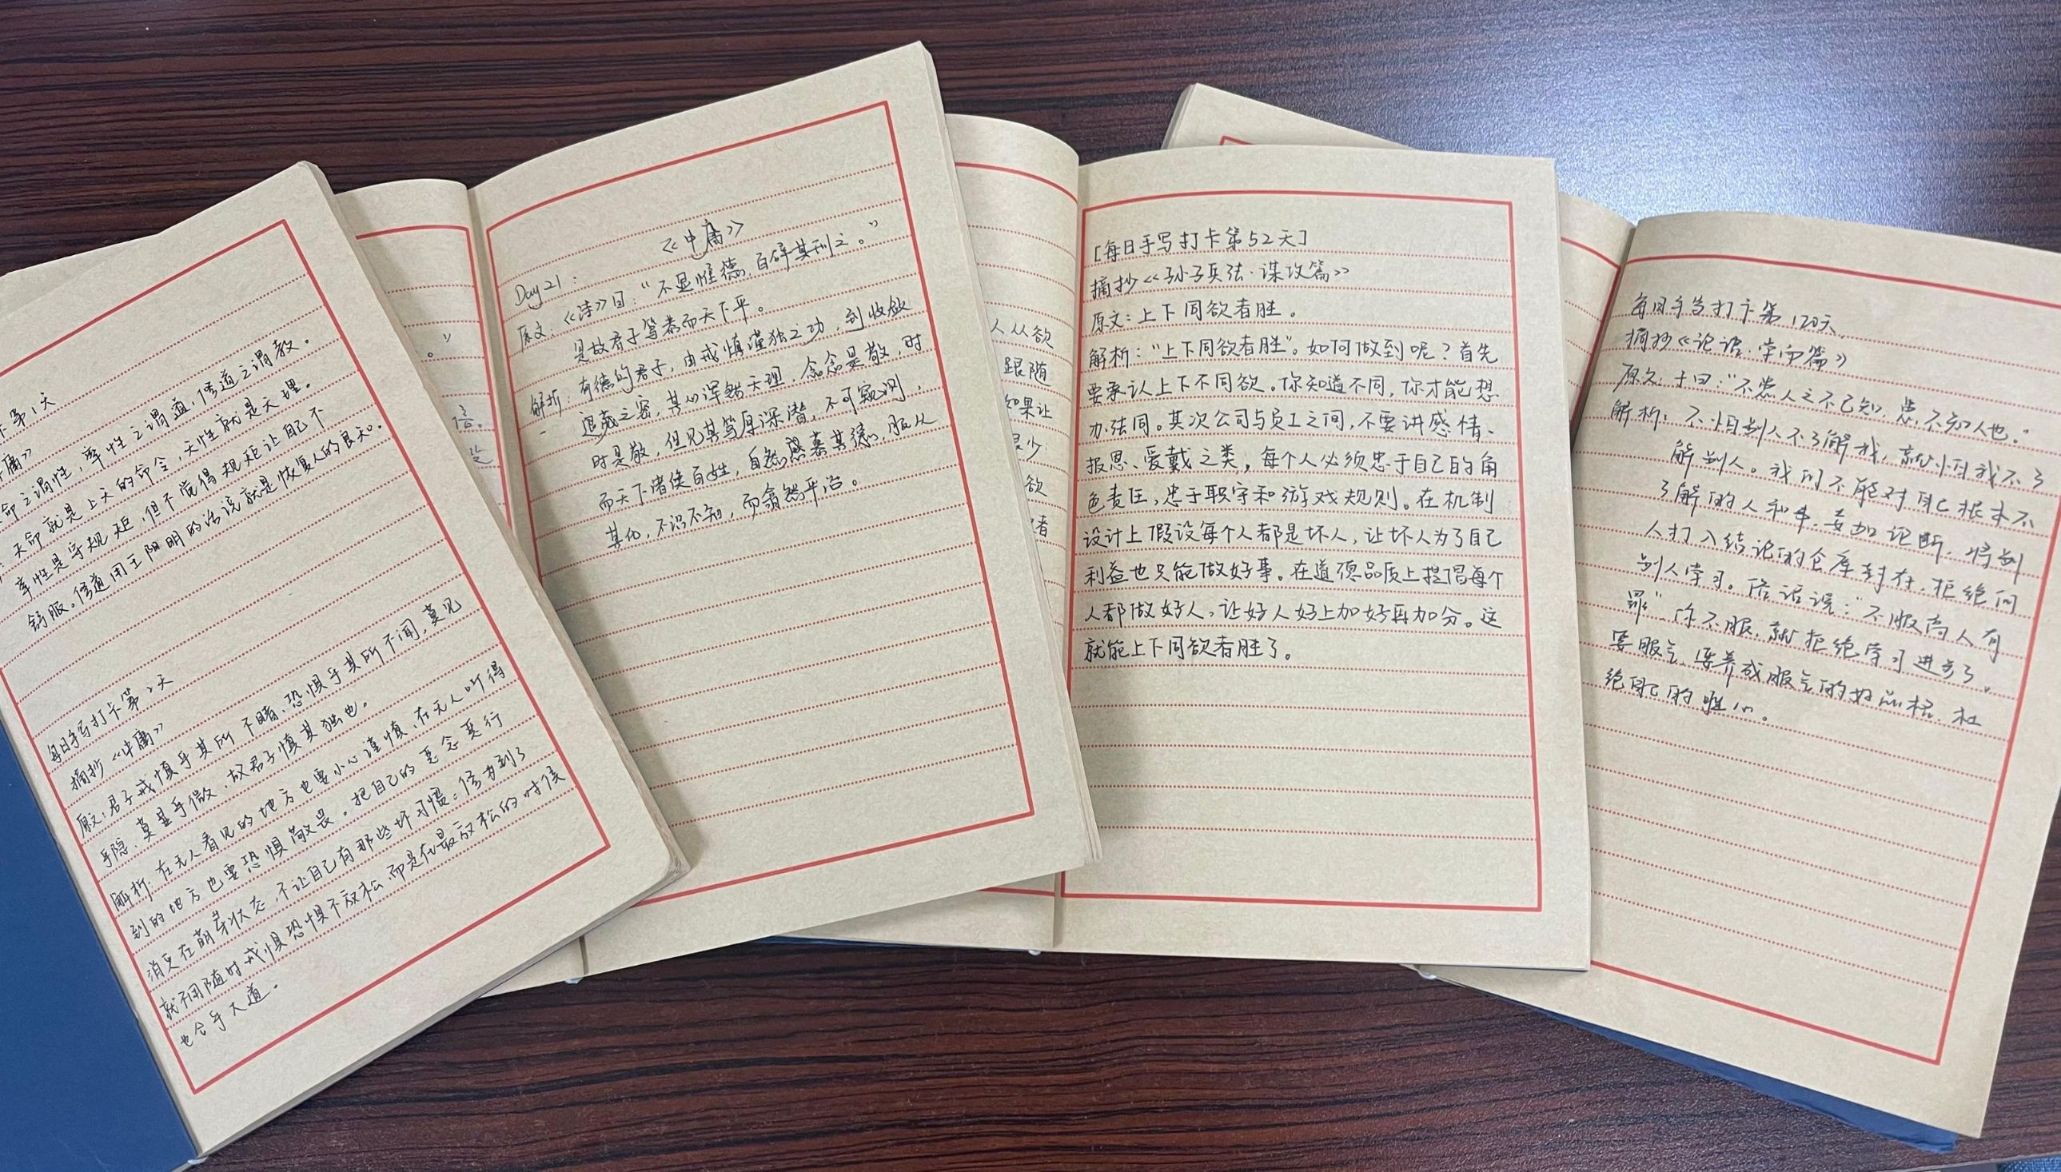 卡第1天
庸》
命之谓性，率性之谓道，修道之谓教。
天命就是上天的命令，天性就是天理。
率性是守规矩，但不觉得规矩让自己不
舒服。修道用王阳明的话说就是恢复人的良知。
每日手写打卡第2天
摘抄《中庸》
原文：君子戒慎乎其所不睹，恐惧乎其所不闻，莫见
乎隐，莫显乎微，故君子慎其独也。
解析：在无人看见的地方也要小心谨慎，在无人听得
到的地方也要恐惧敬畏。把自己的恶念恶行
消灭在萌芽状态，不让自己有那些坏习惯。修为到了
就不用随时戒慎恐惧不放松，而是在最放松的时候
也合乎大道。
。”
信。
《中庸》
Day21：
原文：《诗》曰：“不显惟德，百辟其刑之。”
是故君子笃恭而天下平。
解析：有德的君子，由戒慎谨独之功，到收敛
退藏之密，其心浑然天理，念念是敬，时
时是敬，但见其笃厚深潜，不可窥测，
而天下诸侯百姓，自然感慕其德，服从
其化，不识不知，而翕然平治。
人从欲
跟随
如果让
很少
欲
者
[每日手写打卡第52天]
摘抄《孙子兵法·谋攻篇》
原文：上下同欲者胜。
解析：“上下同欲者胜”。如何做到呢？首先
要承认上下不同欲。你知道不同，你才能想
办法同。其次公司与员工之间，不要讲感情、
报恩、爱戴之类，每个人必须忠于自己的角
色责任，忠于职守和游戏规则。在机制
设计上假设每个人都是坏人，让坏人为了自己
利益也只能做好事。在道德品质上提倡每个
人都做好人，让好人好上加好再加分。这
就能上下同欲者胜了。
每日手写打卡第120天
摘抄《论语·学而篇》
原文：子曰：“不患人之不己知，患不知人也。”
解析：不怕别人不了解我，就怕我不了
解别人。我们不能对自己根本不
了解的人和事，妄加论断，将别
人打入结论的仓库封存，拒绝向
别人学习。俗话说：“不服高人有
罪”你不服，就拒绝学习进步了。
要服气，培养成服气的好品格，杜
绝自己的胜心。